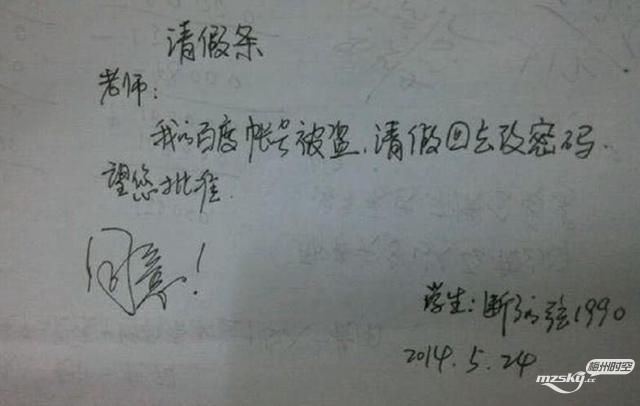 请假条
老师：
我的百度帐号被盗，请假回去改密码．
望您批准．
同意！
学生：断的弦1990
2014.5.24
梅州时空
mzsky.cc